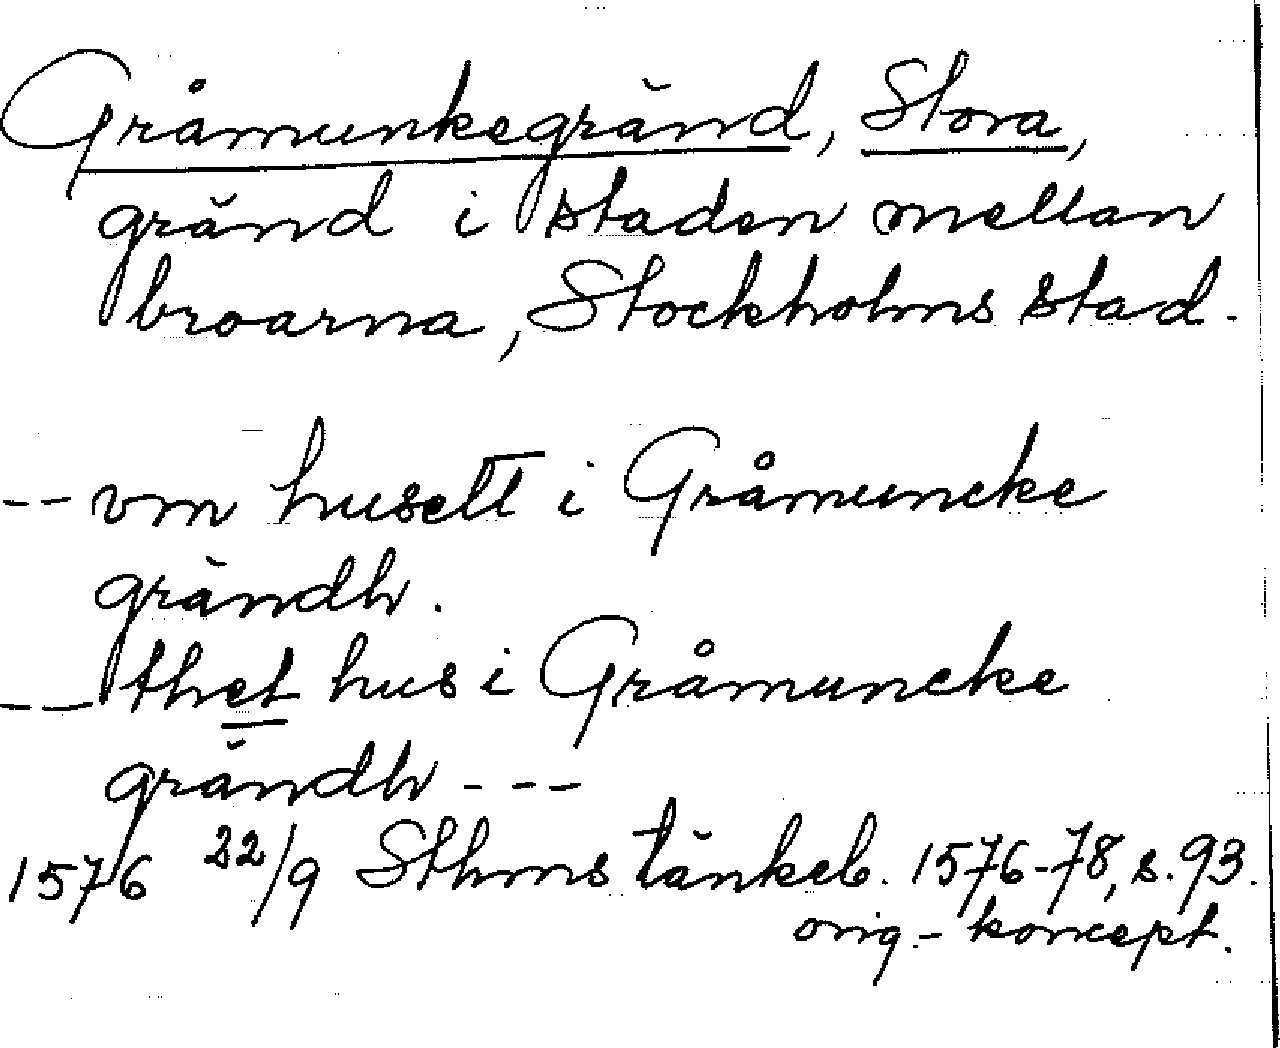 Gråmunkegränd, Stora,
gränd i staden mellan
broarna, Stockholms stad.
-- vm husett i Gråmuncke
grändh.
-- thet hus i Gråmuncke
grändh ---
1576 22/9 Sthms tänkeb. 1576-78, s. 93.
orig.-koncept.